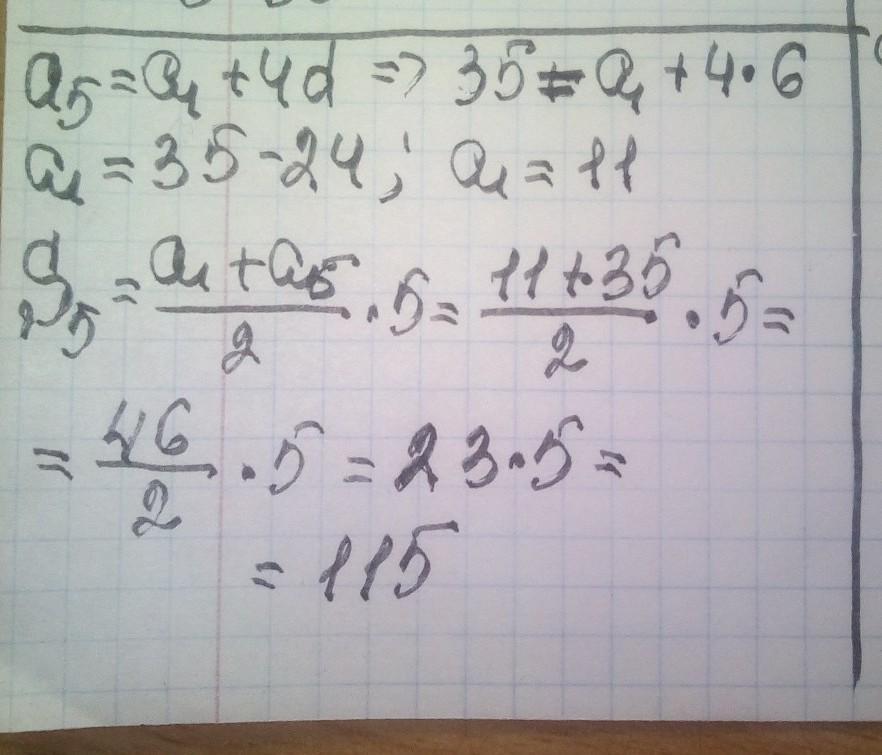 a₅ = a₁ + 4d => 35 = a₁ + 4·6
a₁ = 35 - 24; a₁ = 11
S₅ = (a₁ + a₅)/2 · 5 = (11 + 35)/2 · 5 =
= 46/2 · 5 = 23·5 =
= 115